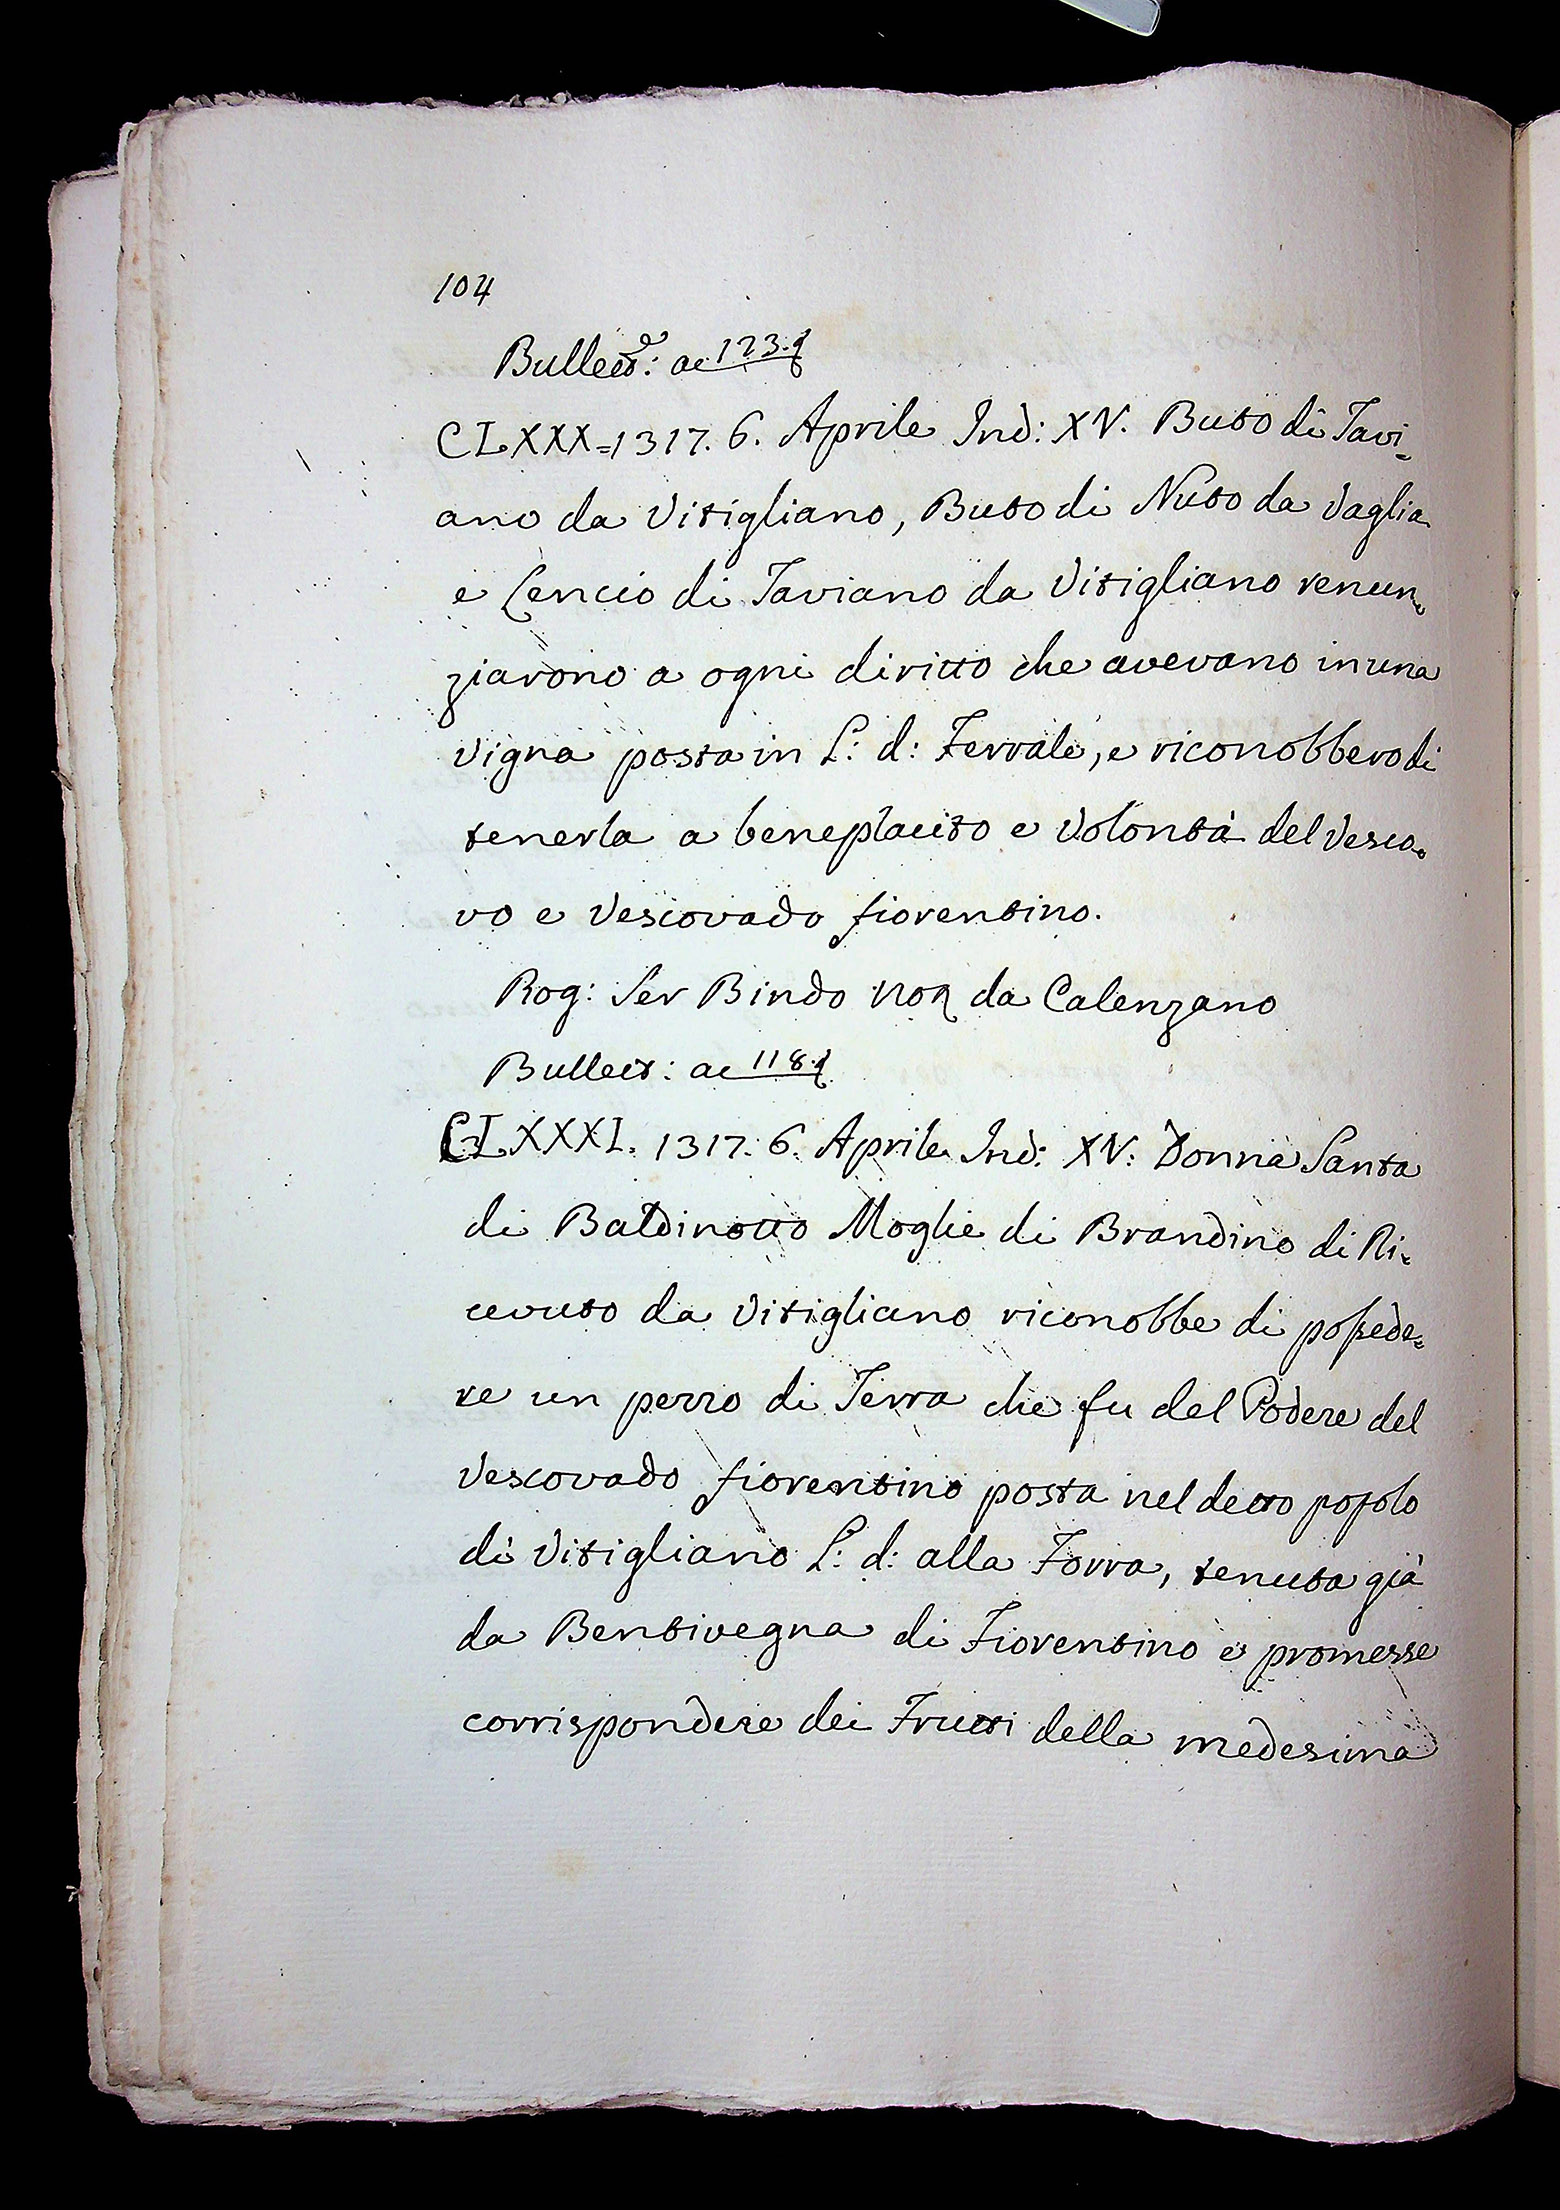 104
Bullett: ac 123.
CLXXX=1317. 6. Aprile Ind: XV. Buto di Tavi=
ano da Vitigliano, Buto di Nuto da Vaglia
e Cencio di Taviano da Vitigliano renun=
ziarono a ogni diritto che avevano in una
vigna posta in L: d: Ferrale, e riconobbero di
tenerla a beneplacito e volontà del Vesco=
vo e Vescovado fiorentino.
Rog: Ser Bindo Not da Calenzano
Bullett: ac 118.
CLXXXI. 1317. 6. Aprile Ind: XV: Donna Santa
di Baldinotto Moglie di Brandino di Ri=
cevuto da Vitigliano riconobbe di possede=
re un pezzo di Terra che fu del Podere del
Vescovado fiorentino posta nel detto popolo
di Vitigliano L: d: alla Forra, tenuta già
da Bentivegna di Fiorentino e promesse
corrispondere dei Frutti della medesima